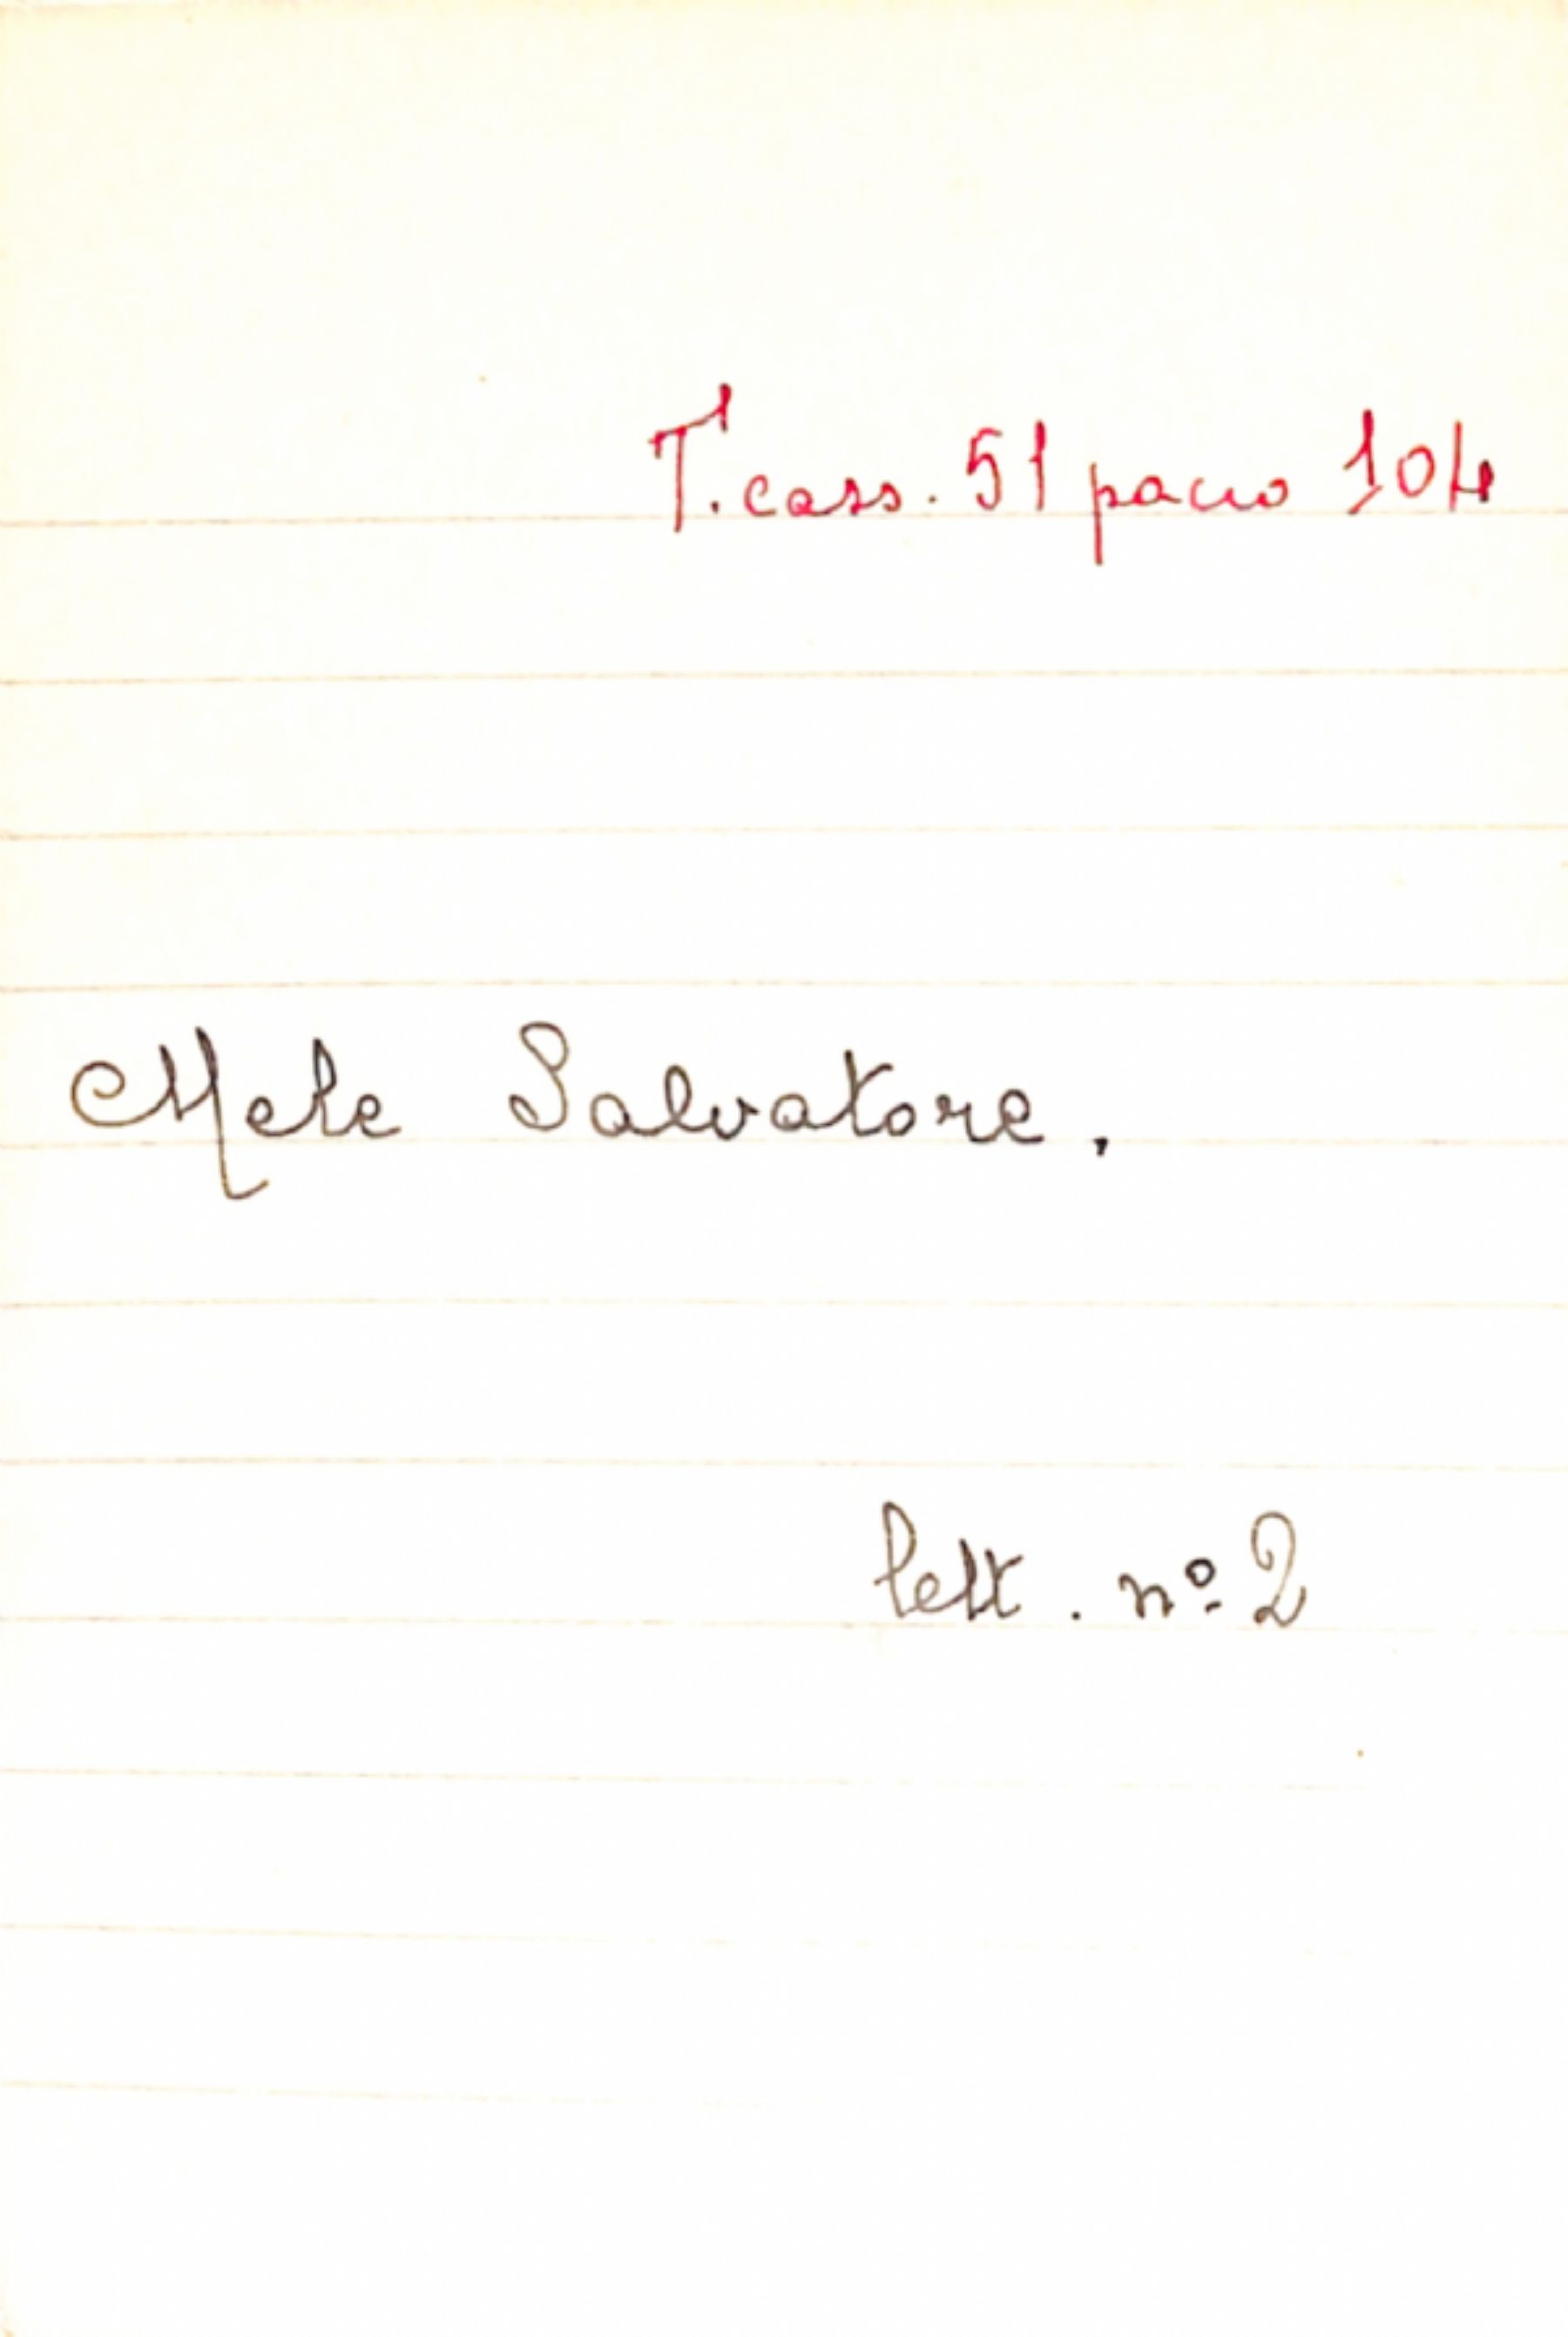 T. cass. 51 pacco 104
Mele Salvatore.
lett. nº 2